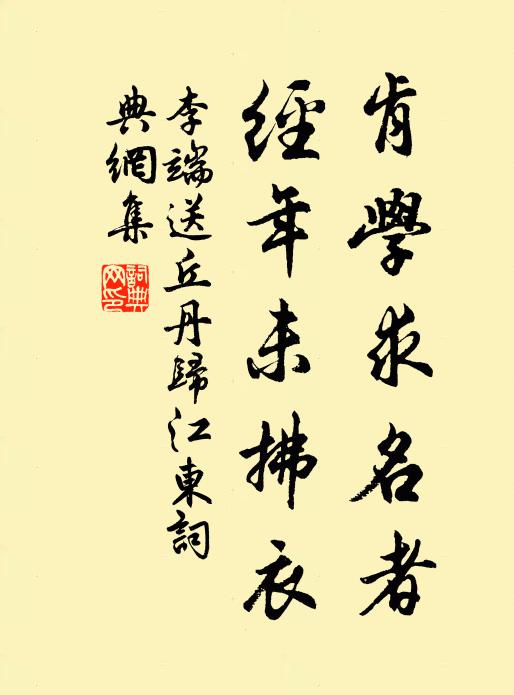 肯學求名者
經年未拂衣
李端送丘丹歸江東詞
典網集
詞典網印